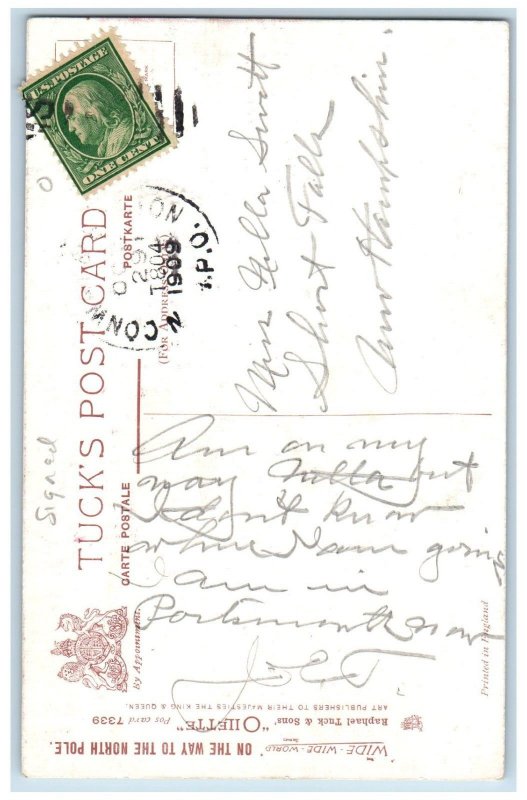 U.S. POSTAGE
ONE CENT
TUCK'S POST CARD
CARTE POSTALE
POSTKARTE
(FOR ADDRESS ONLY)
By Appointment.
CONN
1909
Signed
Miss Zella Swett
Short Falls
New Hampshire.
Am on my
way but
I don't know
where I am going
am in
Portsmouth now
"WIDE-WIDE-WORLD"
Series
ON THE WAY TO THE NORTH POLE.
Raphael Tuck & Sons' "OILETTE" Post card 7339
ART PUBLISHERS TO THEIR MAJESTIES THE KING & QUEEN.
Printed in England